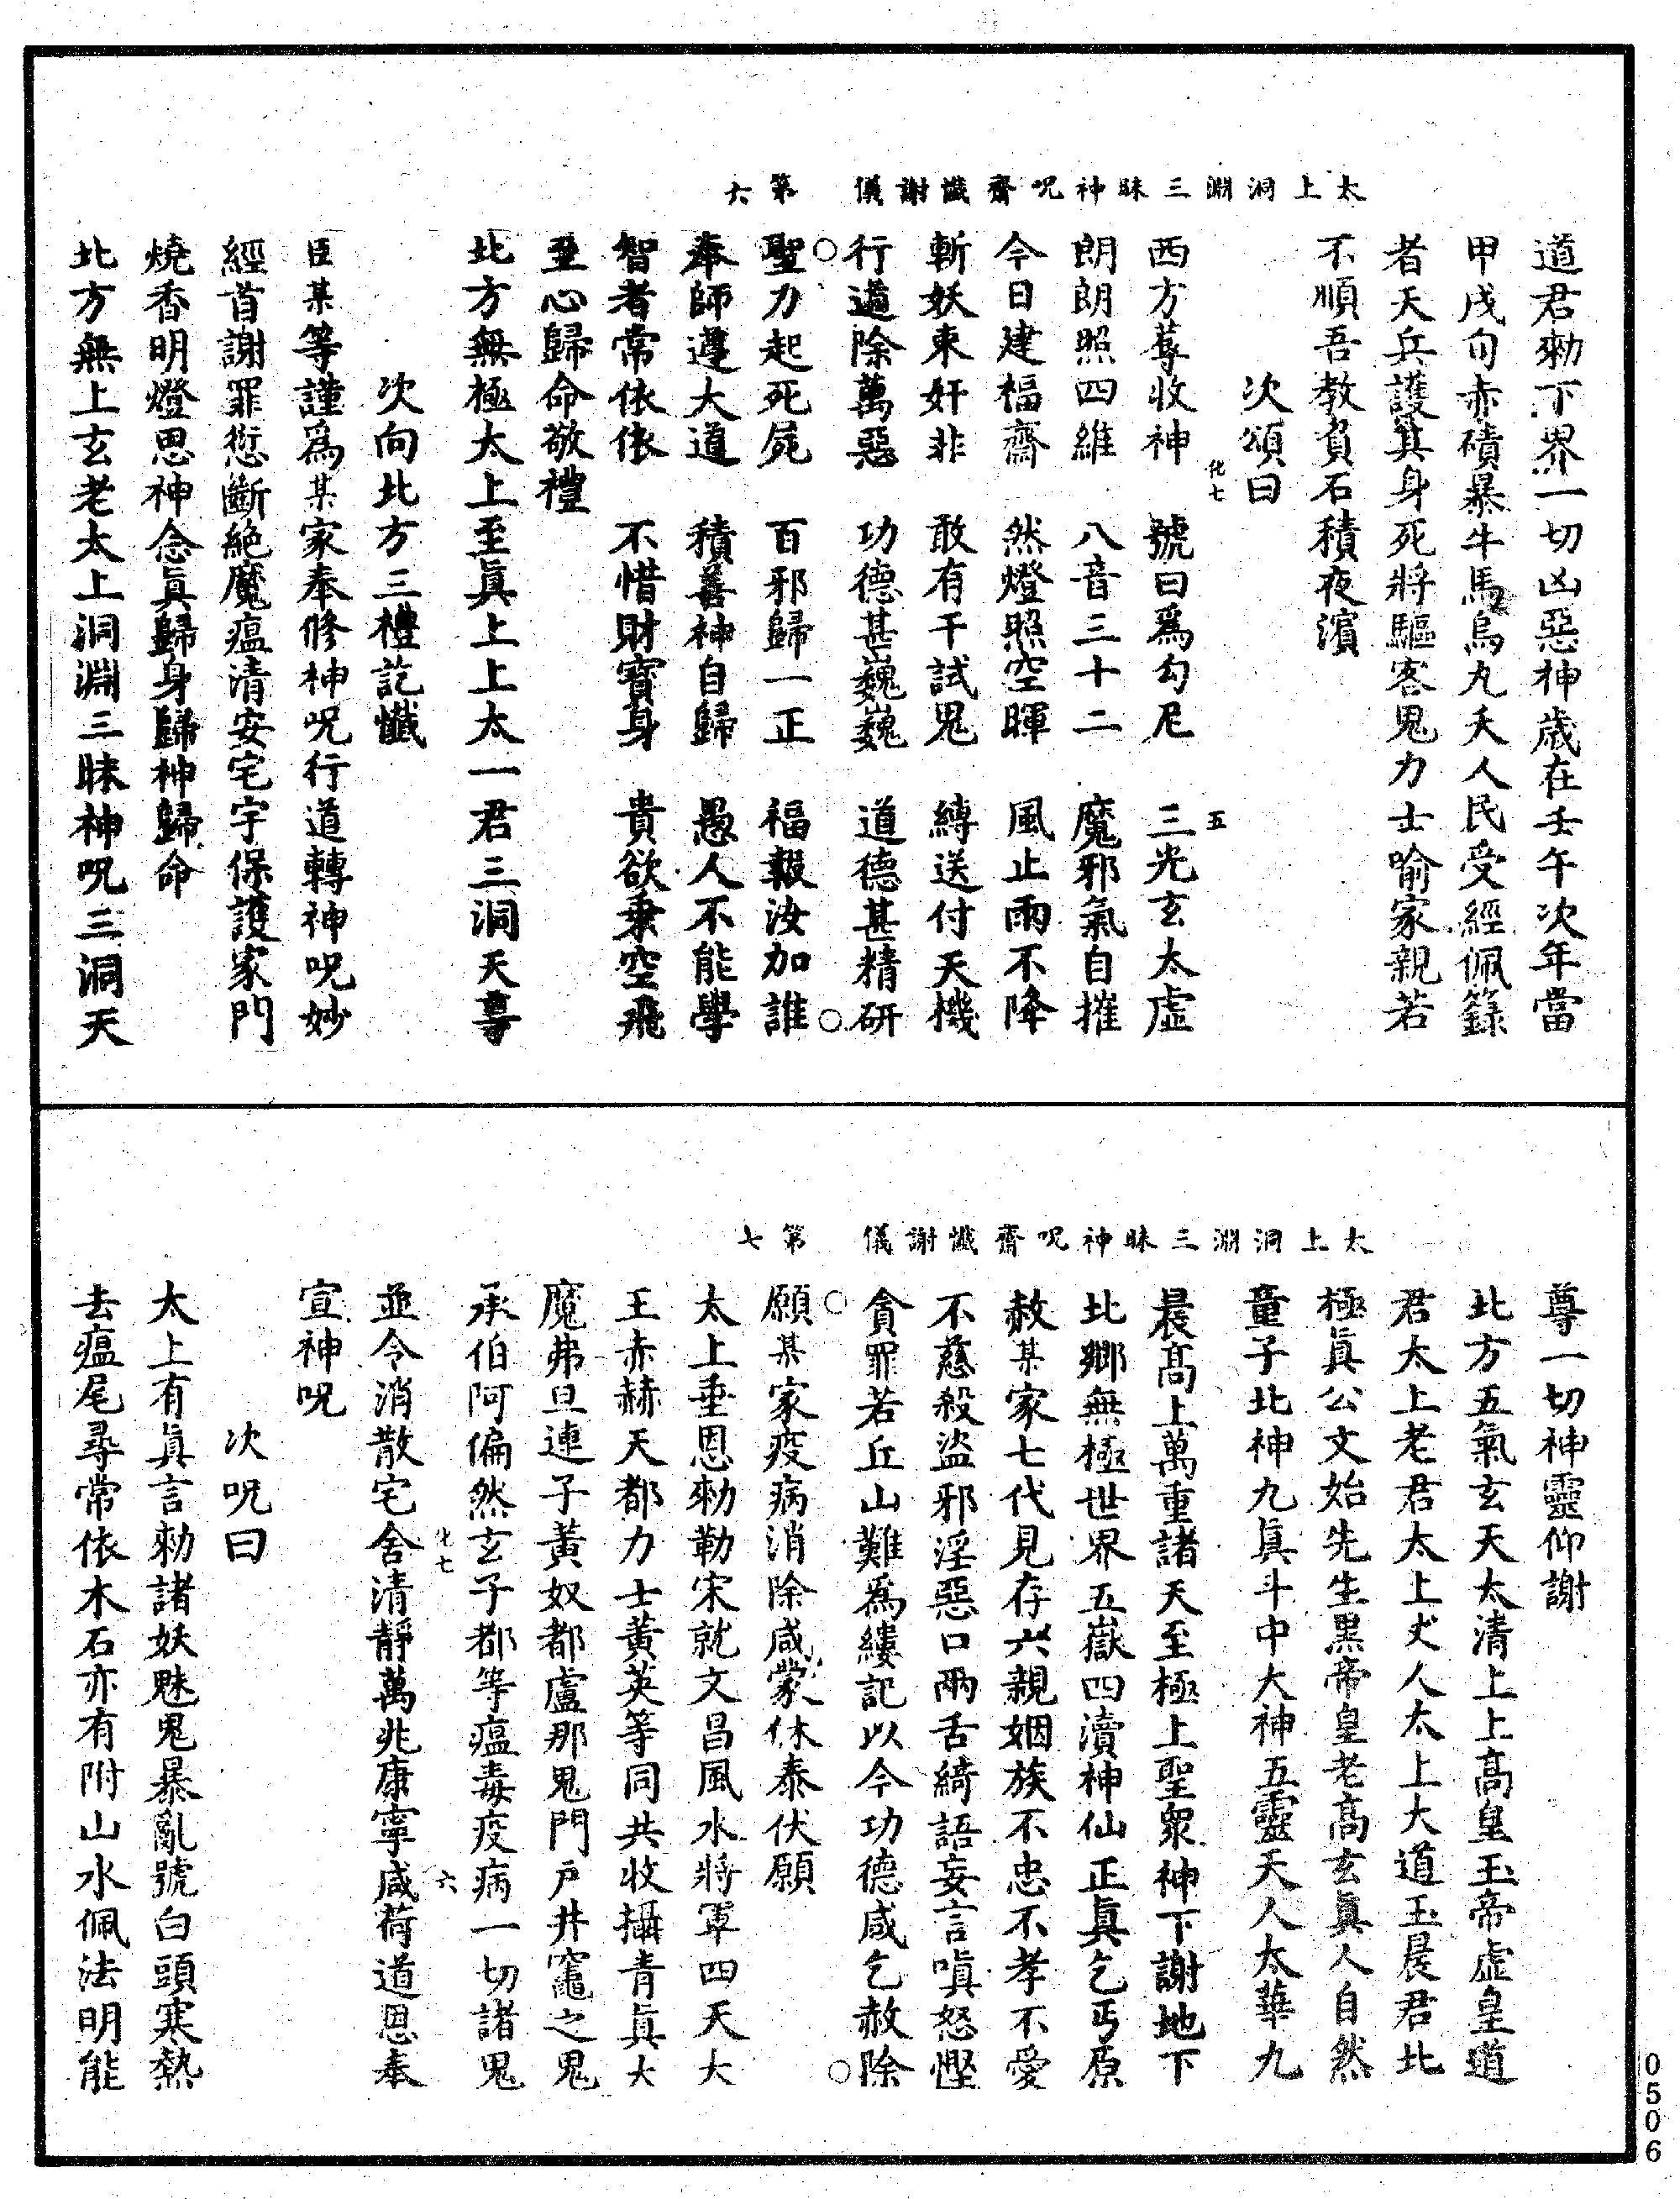 太上洞淵三昧神呪齋懺謝儀　第六
道君勑下界一切凶惡神歲在壬午次年當
甲戌旬赤磧暴牛馬烏丸夭人民受經佩籙
者天兵護其身死將驅客鬼力士喻家親若
不順吾教負石積夜濱
次頌曰
化七　五
西方蓐收神　號曰爲勾尼　三光玄太虛
朗朗照四維　八音三十二　魔邪氣自摧
今日建福齋　然燈照空暉　風止雨不降
斬妖束奸非　敢有干試鬼　縛送付天機
行道除萬惡　功德甚巍巍　道德甚精研
聖力起死屍　百邪歸一正　福報汝加誰
奉師遵大道　積善神自歸　愚人不能學
智者常依依　不惜財寶身　貴欲乘空飛
至心歸命敬禮
北方無極太上至眞上上太一君三洞天尊
次向北方三禮訖懺
臣某等謹爲某家奉修神呪行道轉神呪妙
經首謝罪愆斷絶魔瘟清安宅宇保護家門
燒香明燈思神念眞歸身歸神歸命
北方無上玄老太上洞淵三昧神呪三洞天
太上洞淵三昧神呪齋懺謝儀　第七
尊一切神靈仰謝
北方五氣玄天太清上上高皇玉帝虛皇道
君太上老君太上丈人太上大道玉晨君北
極眞公文始先生黑帝皇老高玄眞人自然
童子北神九眞斗中大神五靈天人太華九
晨高上萬重諸天至極上聖衆神下謝地下
北鄉無極世界五嶽四瀆神仙正眞乞丐原
赦某家七代見存六親姻族不忠不孝不愛
不慈殺盜邪淫惡口兩舌綺語妄言嗔怒慳
貪罪若丘山難爲縷記以今功德咸乞赦除
願某家疫病消除咸蒙休泰伏願
太上垂恩勑勒宋就文昌風水將軍四天大
王赤赫天都力士黃英等同共收攝青眞大
魔弗旦連子黃奴都盧那鬼門戶井竈之鬼
承伯阿偏然玄子都等瘟毒疫病一切諸鬼
化七　六
並令消散宅舍清靜萬兆康寧咸荷道恩奉
宣神呪
次呪曰
太上有眞言勑諸妖魅鬼暴亂號白頭寒熱
去瘟尾尋常依木石亦有附山水佩法明能
0506